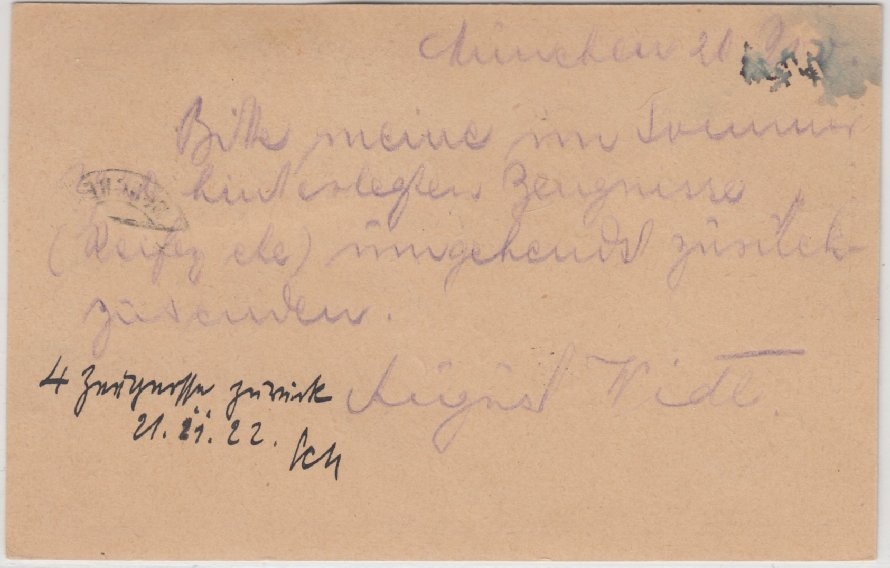 München 20.
Bitte meine im Sommer
hinterlegten Zeugnisse
(Reifez etc) umgehendst zurück-
zusenden.
August
4 Zeugnisse zurück
21. 11. 22.
Sch